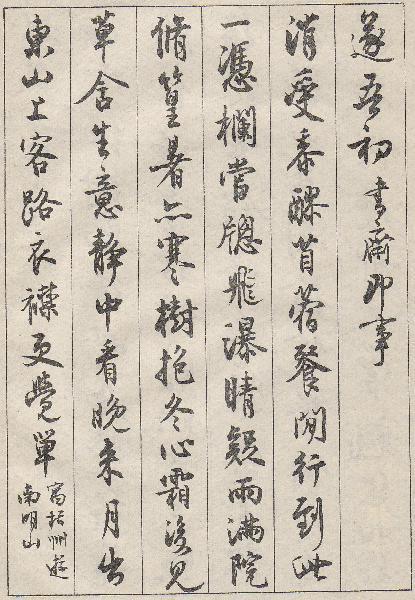 遂吾初 書齋即事
消受黍醪苜蓿餐閒行到此
一憑欄當牕飛瀑晴疑雨滿院
脩篁暑亦寒樹抱冬心霜後見
草含生意靜中看晚來月出
東山上客路衣襟更覺單
寓括州遊
南明山